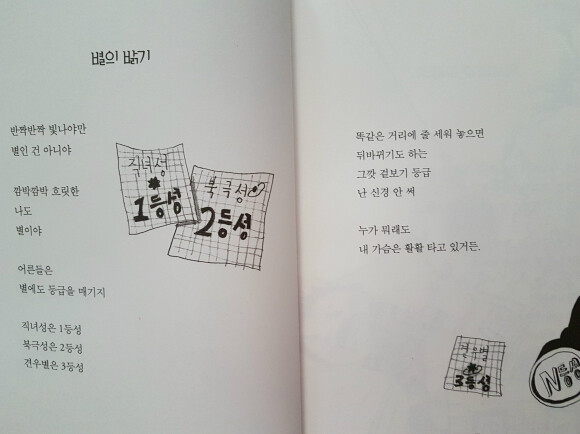 별의 밝기
반짝반짝 빛나야만
별인 건 아니야
깜박깜박 흐릿한
나도
별이야
어른들은
별에도 등급을 매기지
직녀성은 1등성
북극성은 2등성
견우별은 3등성
직녀성
1등성
북극성
2등성
똑같은 거리에 줄 세워 놓으면
뒤바뀌기도 하는
그깟 겉보기 등급
난 신경 안 써
누가 뭐래도
내 가슴은 활활 타고 있거든.
견우별
3등성
N등성